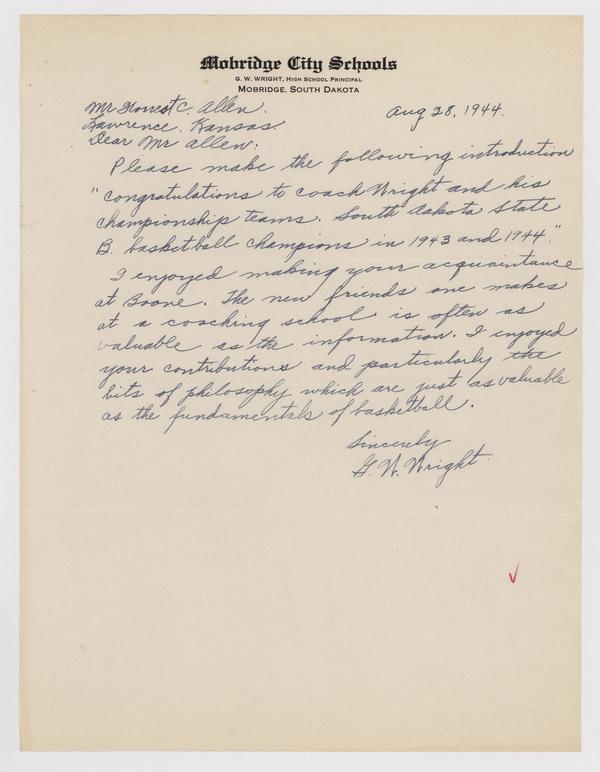 Mobridge City Schools
G. W. WRIGHT, HIGH SCHOOL PRINCIPAL
MOBRIDGE, SOUTH DAKOTA
Aug 28, 1944.
Mr Forrest C. Allen.
Lawrence. Kansas.
Dear Mr Allen:
Please make the following introduction
"congratulations to coach Wright and his
championship teams. South Dakota State
B. basketball champions in 1943 and 1944."
I enjoyed making your acquaintance
at Boone. The new friends one makes
at a coaching school is often as
valuable as the information. I enjoyed
your contributions and particularly the
bits of philosophy which are just as valuable
as the fundamentals of basketball.
Sincerely
G. W. Wright.